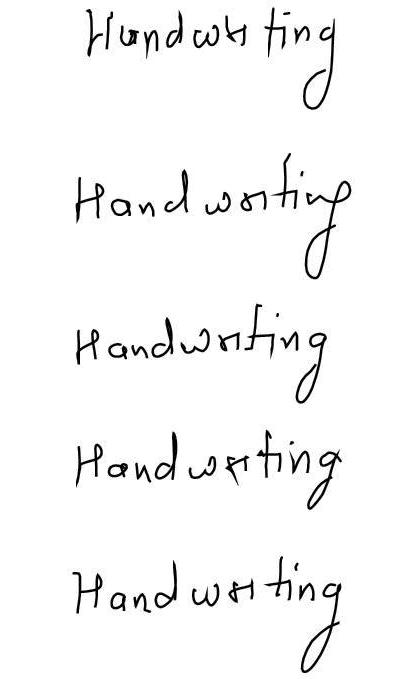 Handwriting
Handwriting
Handwriting
Handwriting
Handwriting